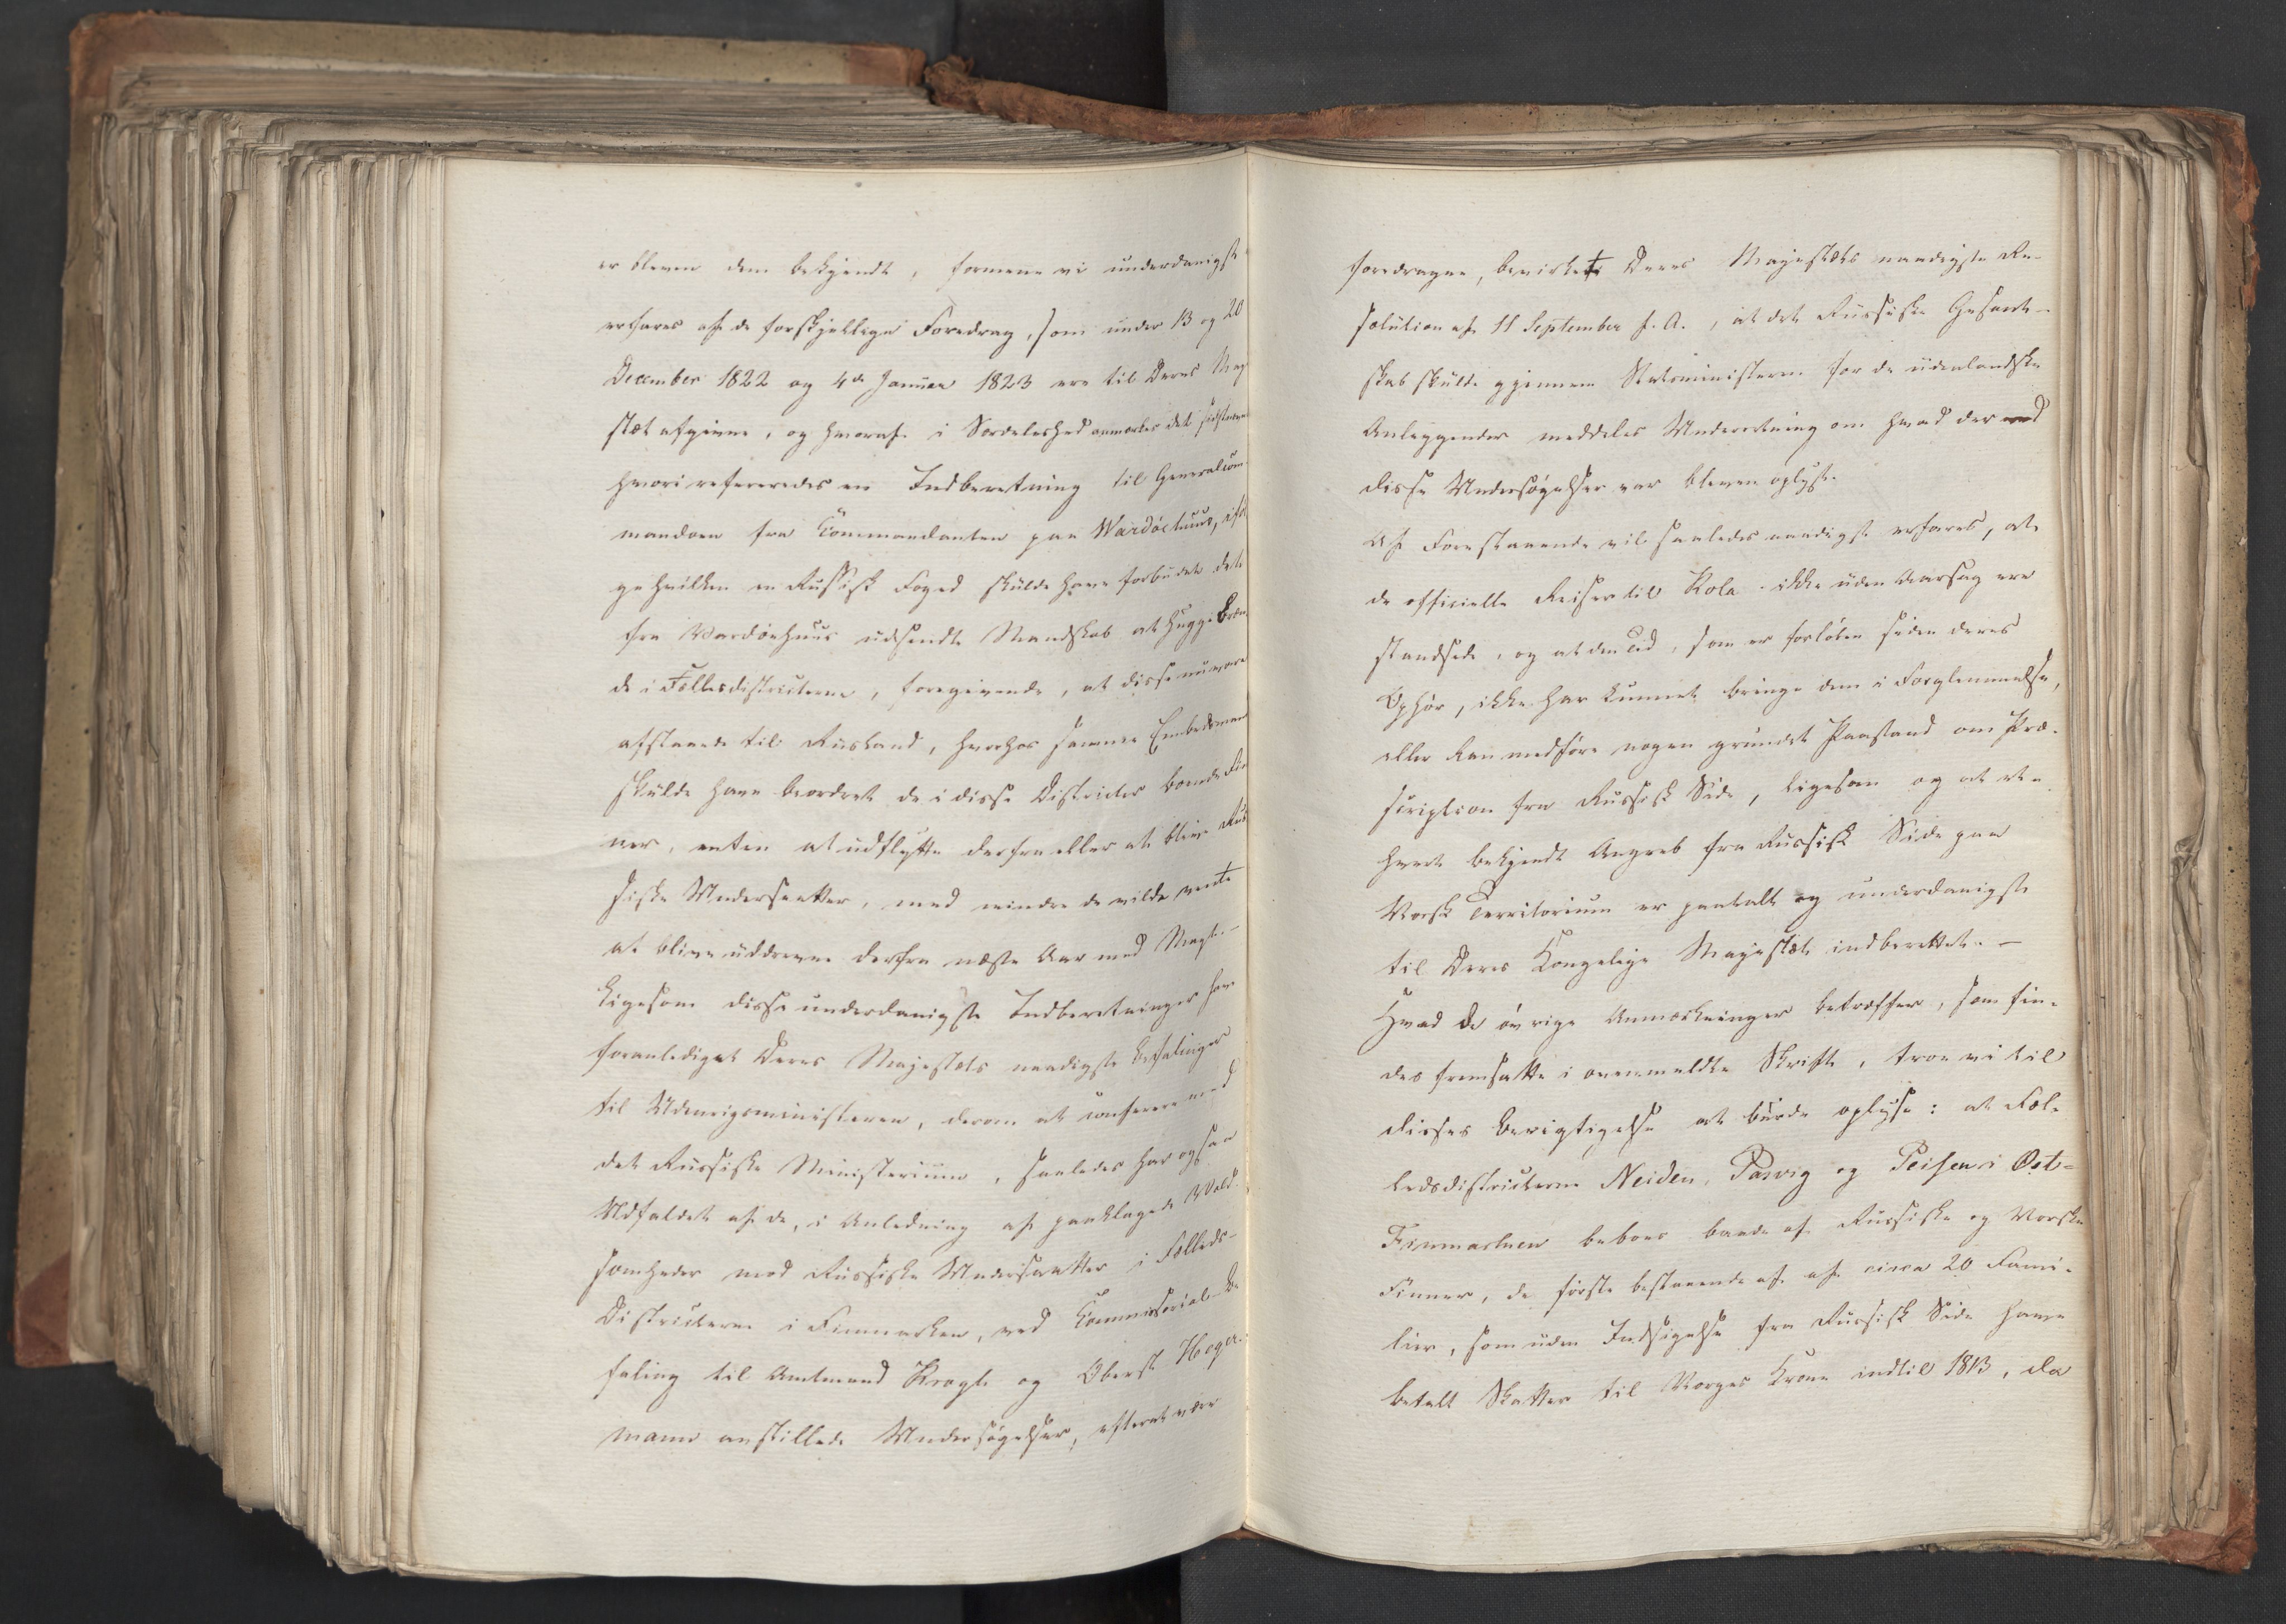 er bleven dem bekjendt, formene vi underdanigst
erfares af de forskjellige Foredrag, som under 13 og 20
December 1822 og 4de Januar 1823 ere til Deres Maj
stæt afgivne, og hvoraf i Særdeleshed anmærkes det sidstnævn
hvori refereredes en Indberetning til Generalcom-
mandoen fra Commandanten paa Wardöehuus, iföl
ge hvilken en Russisk Foged skulde have forbudet det
fra Wardöehuus udsendte Mandskab at hugge Bræn
de i Fællesdistricterne, foregivende, at disse nu vare
afstaaede til Rusland, hvorhos samme Embedsmand
skulde have beordret de i disse Districter boende Fin
ner, enten at udflytte derfra eller at blive Rus
siske Undersaatter, med mindre de vilde vente
at blive uddrevne derfra næste Aar med Magt. -
Ligesom disse underdanigste Indberetninger have
foranlediget Deres Majestæts naadigste Befalinger
til Udenrigsministeren, derom at conferere med
det Russiske Ministerium, saaledes har ogsaa
Udfaldet af de, i Anledning af paaklagede Vold-
somheder mod Russiske Undersaatter i Fælleds-
Districterne i Finmarken, ved Commissorial-Be
faling til Amtmand Krogh og Oberst Heger-
mann anstillede Undersögelser, efterat være
foredragne, bevirket Deres Majestæts naadigste Re-
solution af 11 September f. A., at det Russiske Gesandt-
skab skulde gjennem Statsministeren for de udenlandske
Anliggender meddeles Underretning om hvad der ved
disse Undersögelser var bleven oplyst.
Af Forestaaende vil saaledes naadigst erfares, at
de officielle Reiser til Kola ikke uden Aarsag ere
standsede, og at den Tid, som er forlöben siden deres
Ophör, ikke har kunnet bringe dem i Forglemmelse,
eller kan medföre nogen grundet Paastand om Præ-
scription fra Russisk Side, ligesom og at et-
hvert bekjendt Angreb fra Russisk Side paa
Norsk Territorium er paatalt og underdanigst
til Deres Kongelige Majestæt indberettet. -
Hvad de övrige Anmærkninger betræffer, som fin-
des fremsatte i ovenmeldte Skrift, troe vi til
disses Berigtigelse at burde oplyse: at Fæl-
ledsdistricterne Neiden, Pasvig og Peisen i Öst-
Finmarken beboes baade af Russiske og Norske
Finner, de förste bestaaende af af circa 20 Fami-
lier, som uden Indsigelse fra Russisk Side have
betalt Skatter til Norges Krone indtil 1813, da